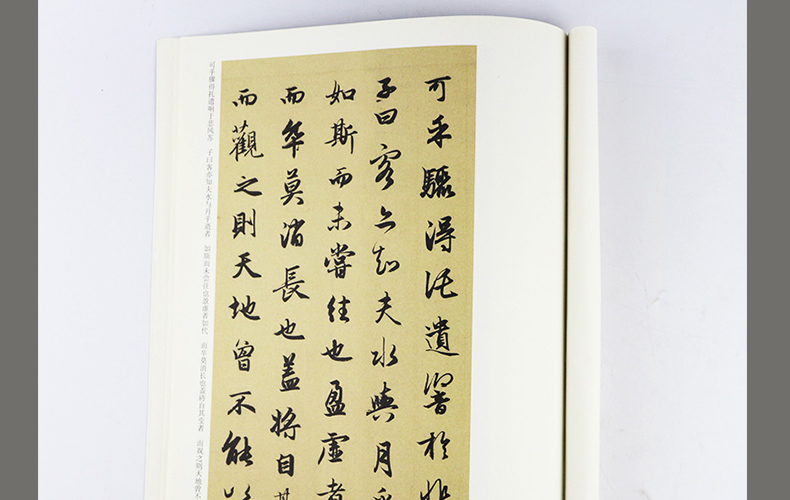 可乎驟得託遺響於悲
子曰客亦知夫水與月乎
如斯而未嘗往也盈虛者
而卒莫消長也蓋將自其
而觀之則天地曾不能以
可乎骤得托遗响于悲风苏 子曰客亦知夫水与月乎逝者 如斯而未尝往也盈虚者如代 而卒莫消长也盖将自其变者 而观之则天地曾不